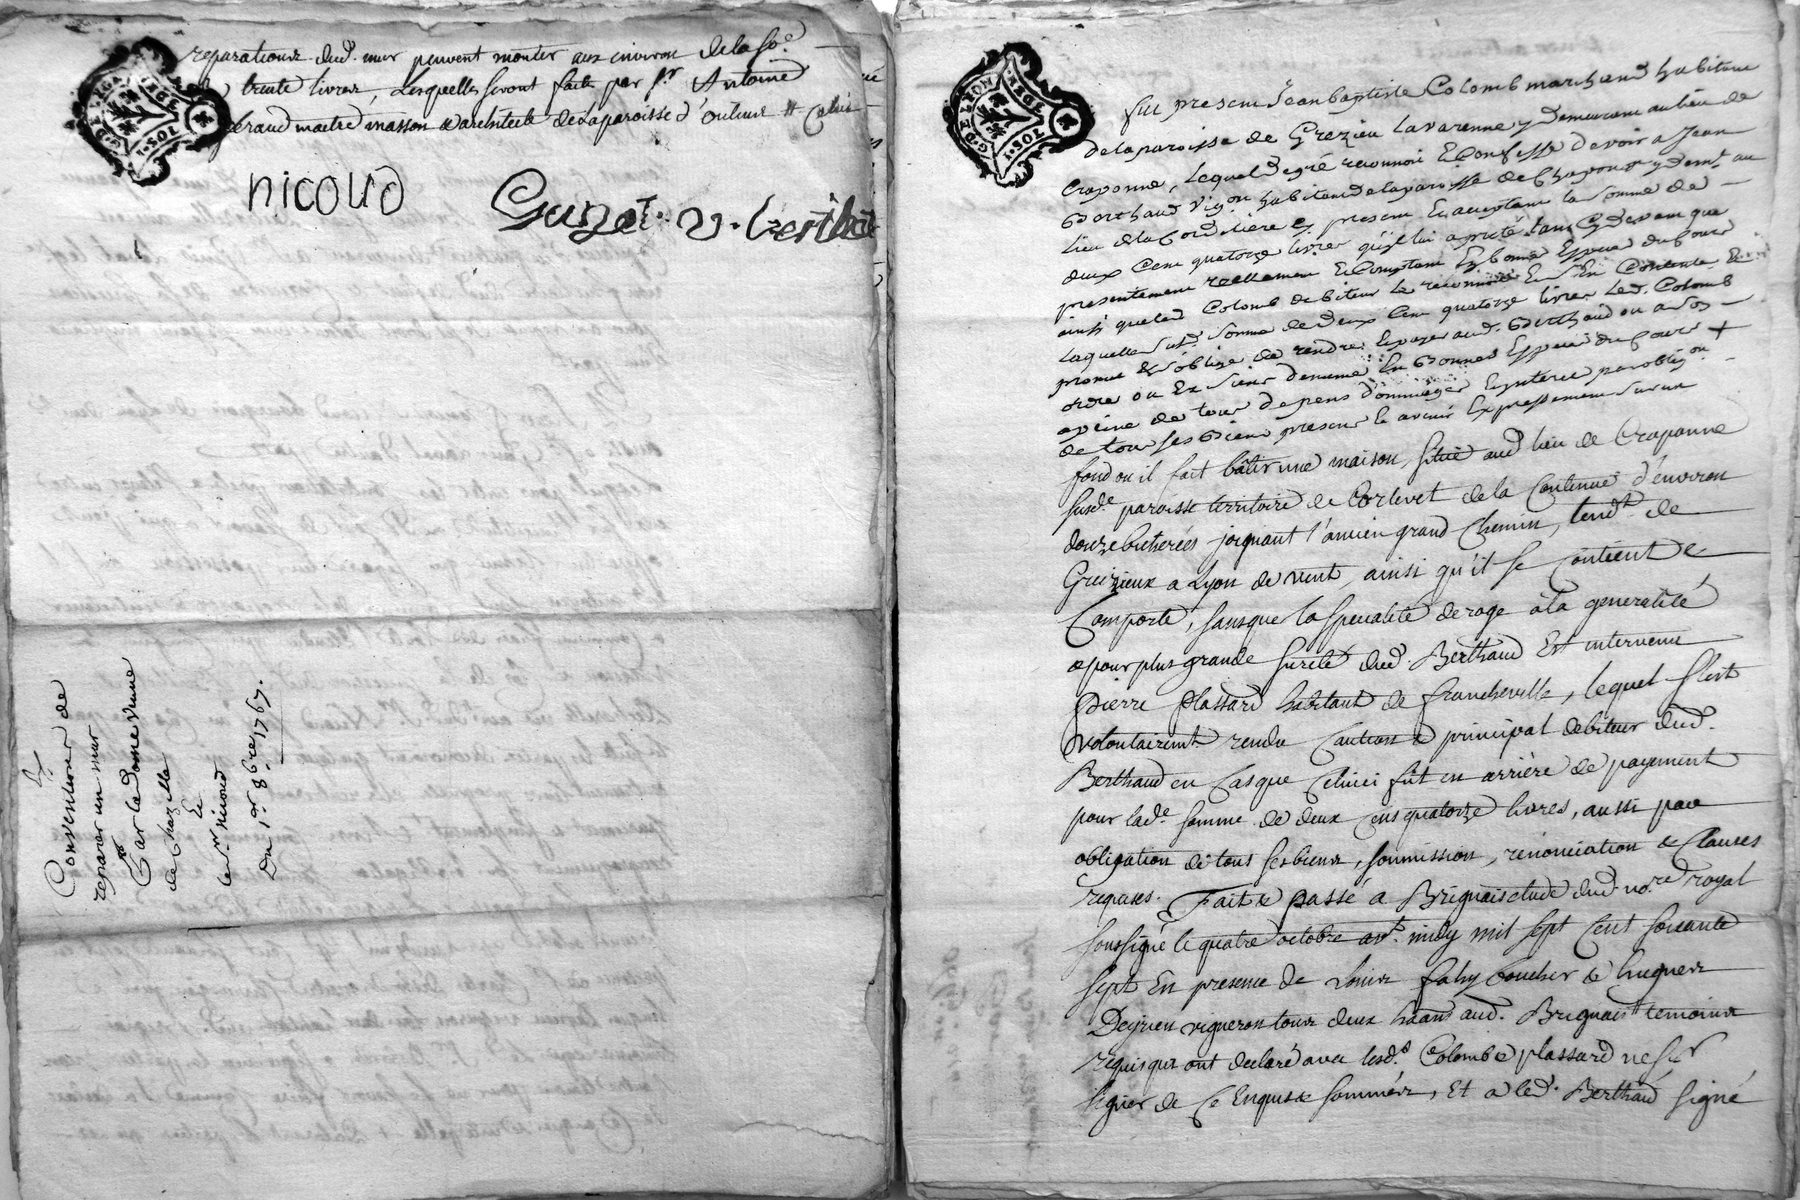 reparations dud. mur peuvent monter aux environ de la so.e
trente livres, Lesquelles seront faite par s.r Antoine
braud maitre masson & architecte de la paroisse d'oulins
nicoud
Guzet
Convention de
reparer un mur
Par la done veuve
de Chazelle
Et
le s.r nicoud
Du 1.er 8bre 1767.
G. DE LYON
2 SOLS
fut present Jean baptiste Colomb marchand habitant
de la paroisse de Grezieu Lavarenne y demeurant au lieu de
Craponne, Lequel de gré reconnoit & Confesse devoir a Jean
Berthaud vigon habitant de la paroisse de Chaponost y demt au
lieu de la Cordeliere Cy present & acceptant la somme de
deux Cent quatorze livres qu'il lui a preté tant Cy devant que
presentement reellement & Comptant En bonne Espece du Cours
ainsi que led Colomb debiteur le reconnoit & s'En Contente &
Laquelle susd. somme de deux Cent quatorze livres led. Colomb
promet & s'oblige de rendre & payer aud. Berthaud ou a son
ordre ou Ex siens En Bonnes Espece du Cours +
a peine de tous depens dommages & interets par oblig.on
de tous ses Biens present & avenir Expressement sur un
fond ou il fait bâtir une maison, situé aud lieu de Craponne
susd.e paroisse territoire de Corlevet de la Contenue d'environ
douze bicherées joignant l'ancien grand Chemin, tend.t de
Greizieux a Lyon de vent, ainsi qu'il se Contient &
Comporte, sans que la specialité deroge à la generalité
& pour plus grande sureté dud. Berthaud Est intervenu
Pierre plassard habitant de francheville, lequel s'est
volontairem.t rendu Caution & principal debiteur dud.
Berthaud en Cas que Celuici fut en arriére de payement
pour lad.e somme de deux Cens quatorze livres, aussi par
obligation de tous ses biens, soumission, rénonciation & Clauses
requises. Fait & passé a Brignais etude dud. no.re royal
soussigné le quatre octobre av.t midy mil sept Cent soixante
sept En presence de Louis fahy boucher & hugues
Dejrieu vigneron tous deux hâans aud. Brignais temoins
requis qui ont declaré avec lesd.s Colomb & plassard ne s.r
signer de Ce Enquis & sommérs, Et a led. Berthaud signé